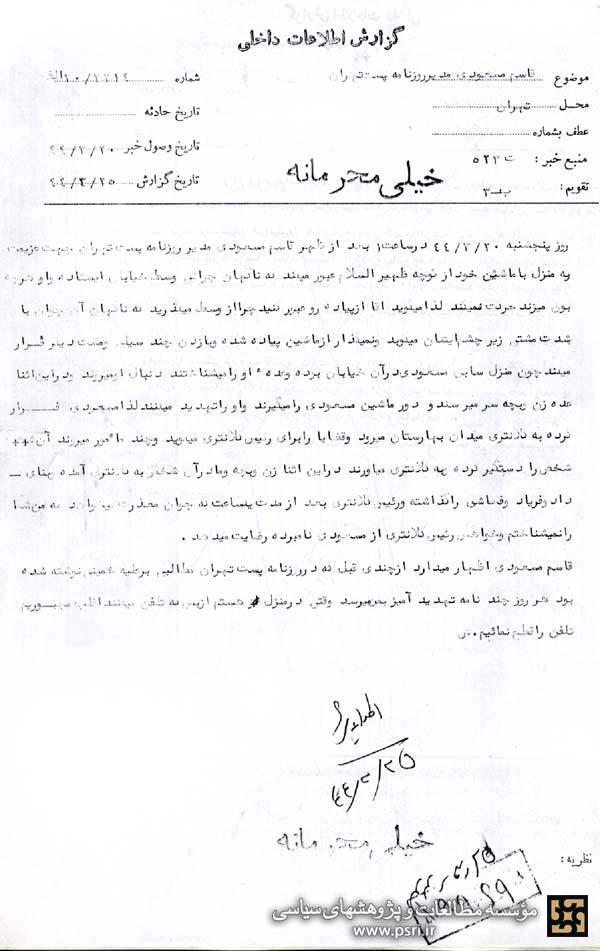 گزارش اطلاعات داخلی
موضوع قاسم مسعودی مدیر روزنامه پست تهران
شماره ۱۰/۲۲۱۴/الف
محل: تهران
تاریخ حادثه
عطف بشماره
تاریخ وصول خبر ۴۴/۳/۲۰
منبع خبر: ت ۵۲۳
خیلی محرمانه
تقویم: ب-۳
تاریخ گزارش ۴۴/۳/۲۵
روز پنجشنبه ۴۴/۳/۲۰ در ساعت ۱ بعد از ظهر قاسم مسعودی مدیر روزنامه پست تهران جهت عزیمت
به منزل با ماشین خود از کوچه ظهیر السلام عبور میکند که ناگهان جوانی وسط خیابان ایستاده و او هرچه
بوق میزند حرکت نمیکند لذا میگوید آقا از پیاده رو عبور کنید چرا از وسط میگذرید که ناگهان آن جوان با
شدت مشتی زیر چشم ایشان میکوبد و نمیگذارد از ماشین پیاده شده و با زدن چند سیلی و مشت دیگر فرار
میکند چون منزل سابق مسعودی در آن خیابان بوده و عده ای او را میشناختند دنبال او میروند و در این اثنا
عده زن و بچه سر میرسند و دور ماشین مسعودی را میگیرند و او را تهدید میکنند لذا مسعودی فرار
کرده به کلانتری میدان بهارستان میرود و قضایا را برای رئیس کلانتری میگوید و چند مامور میروند آن
شخص را دستگیر کرده به کلانتری میاورند در این اثنا زن و بچه و مادر آن شخص به کلانتری آمده بنای
داد و فریاد و فحاشی را گذاشته و رئیس کلانتری بعد از مدت یکساعت که جوان معذرت میخواهد که من شما
را نمیشناختم و خواهش رئیس کلانتری از مسعودی نامبرده رضایت میدهد.
قاسم مسعودی اظهار میدارد از چندی قبل که در روزنامه پست تهران مطالبی بر علیه خمینی نوشته شده
بود هر روز چند نامه تهدید آمیز بمن میرسد وقتی در منزل هستم از بس که تلفن میکنند اغلب مجبوریم
تلفن را قطع نمائیم.
۴۴/۳/۲۵
خیلی محرمانه
نظریه:
موسسه مطالعات و پژوهشهای سیاسی
www.psri.ir